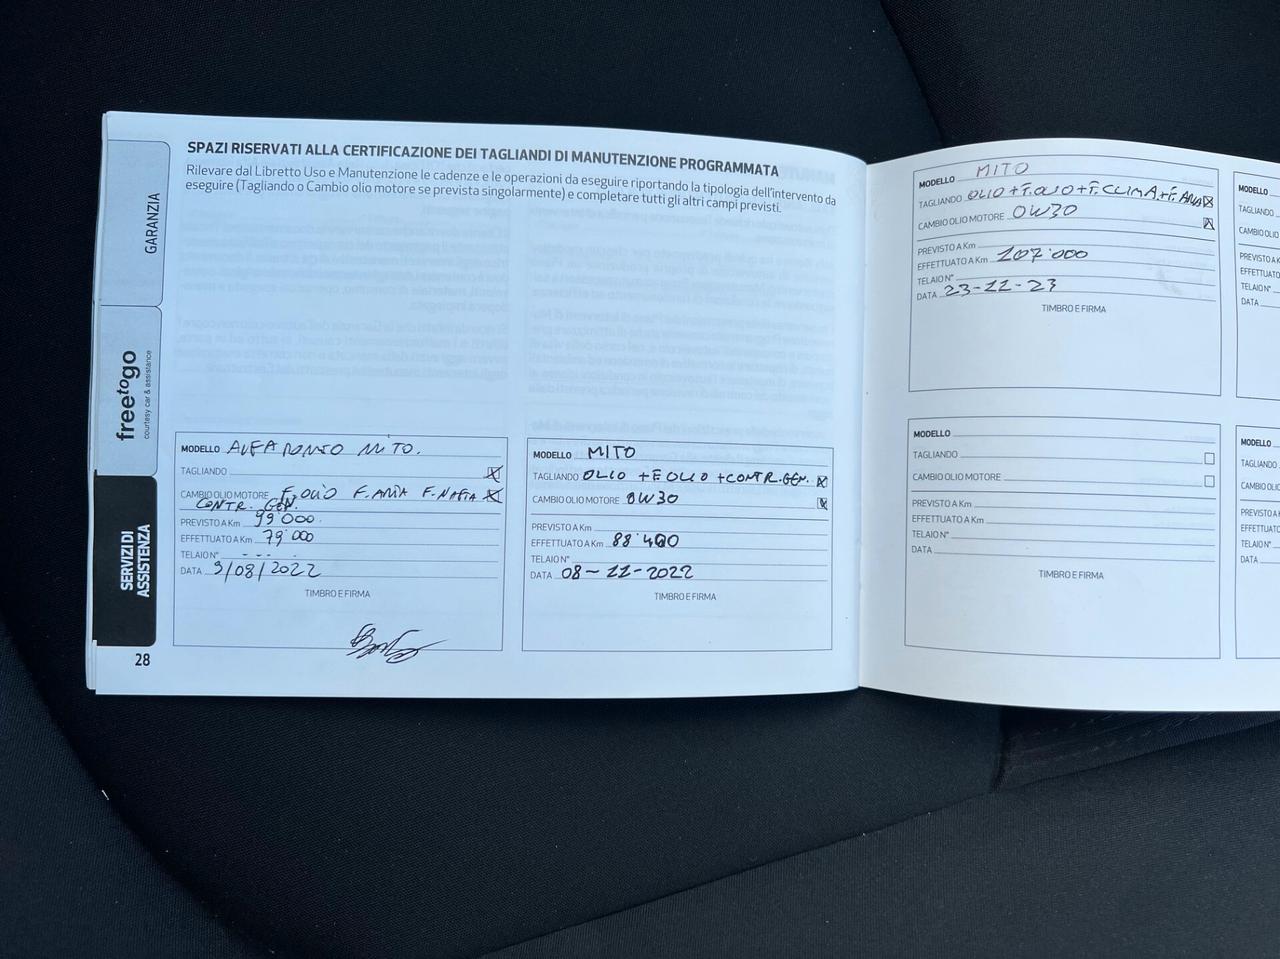 SPAZI RISERVATI ALLA CERTIFICAZIONE DEI TAGLIANDI DI MANUTENZIONE PROGRAMMATA
Rilevare dal Libretto Uso e Manutenzione le cadenze e le operazioni da eseguire riportando la tipologia dell'intervento da
eseguire (Tagliando o Cambio olio motore se prevista singolarmente) e completare tutti gli altri campi previsti.
GARANZIA
freetogo
courtesy car & assistance
SERVIZI DI
ASSISTENZA
28
MODELLO ALFA ROMEO MITO.
TAGLIANDO
CAMBIO OLIO MOTORE F. OLIO F. ARIA F. NAFTA
CONTR. GEN.
PREVISTO A Km 99'000
EFFETTUATO A Km 79'000
TELAIO N° - - - .
DATA 9/08/2022
TIMBRO E FIRMA
MODELLO MITO
TAGLIANDO OLIO + F OLIO + CONTR. GEN.
CAMBIO OLIO MOTORE 0W30
PREVISTO A Km
EFFETTUATO A Km 88'400
TELAIO N°
DATA 08-11-2022
TIMBRO E FIRMA
MODELLO MITO
TAGLIANDO OLIO + F. OLIO + F. CLIMA + F. ARIA
CAMBIO OLIO MOTORE 0W30
PREVISTO A Km
EFFETTUATO A Km 107'000
TELAIO N°
DATA 23-11-23
TIMBRO E FIRMA
MODELLO
TAGLIANDO
CAMBIO OLIO MOTORE
PREVISTO A Km
EFFETTUATO A Km
TELAIO N°
DATA
TIMBRO E FIRMA
MODELLO
TAGLIANDO
CAMBIO OLIO
PREVISTO A K
EFFETTUATO
TELAIO N°
DATA
MODELLO
TAGLIANDO
CAMBIO OLIO
PREVISTO A K
EFFETTUATO
TELAIO N°
DATA